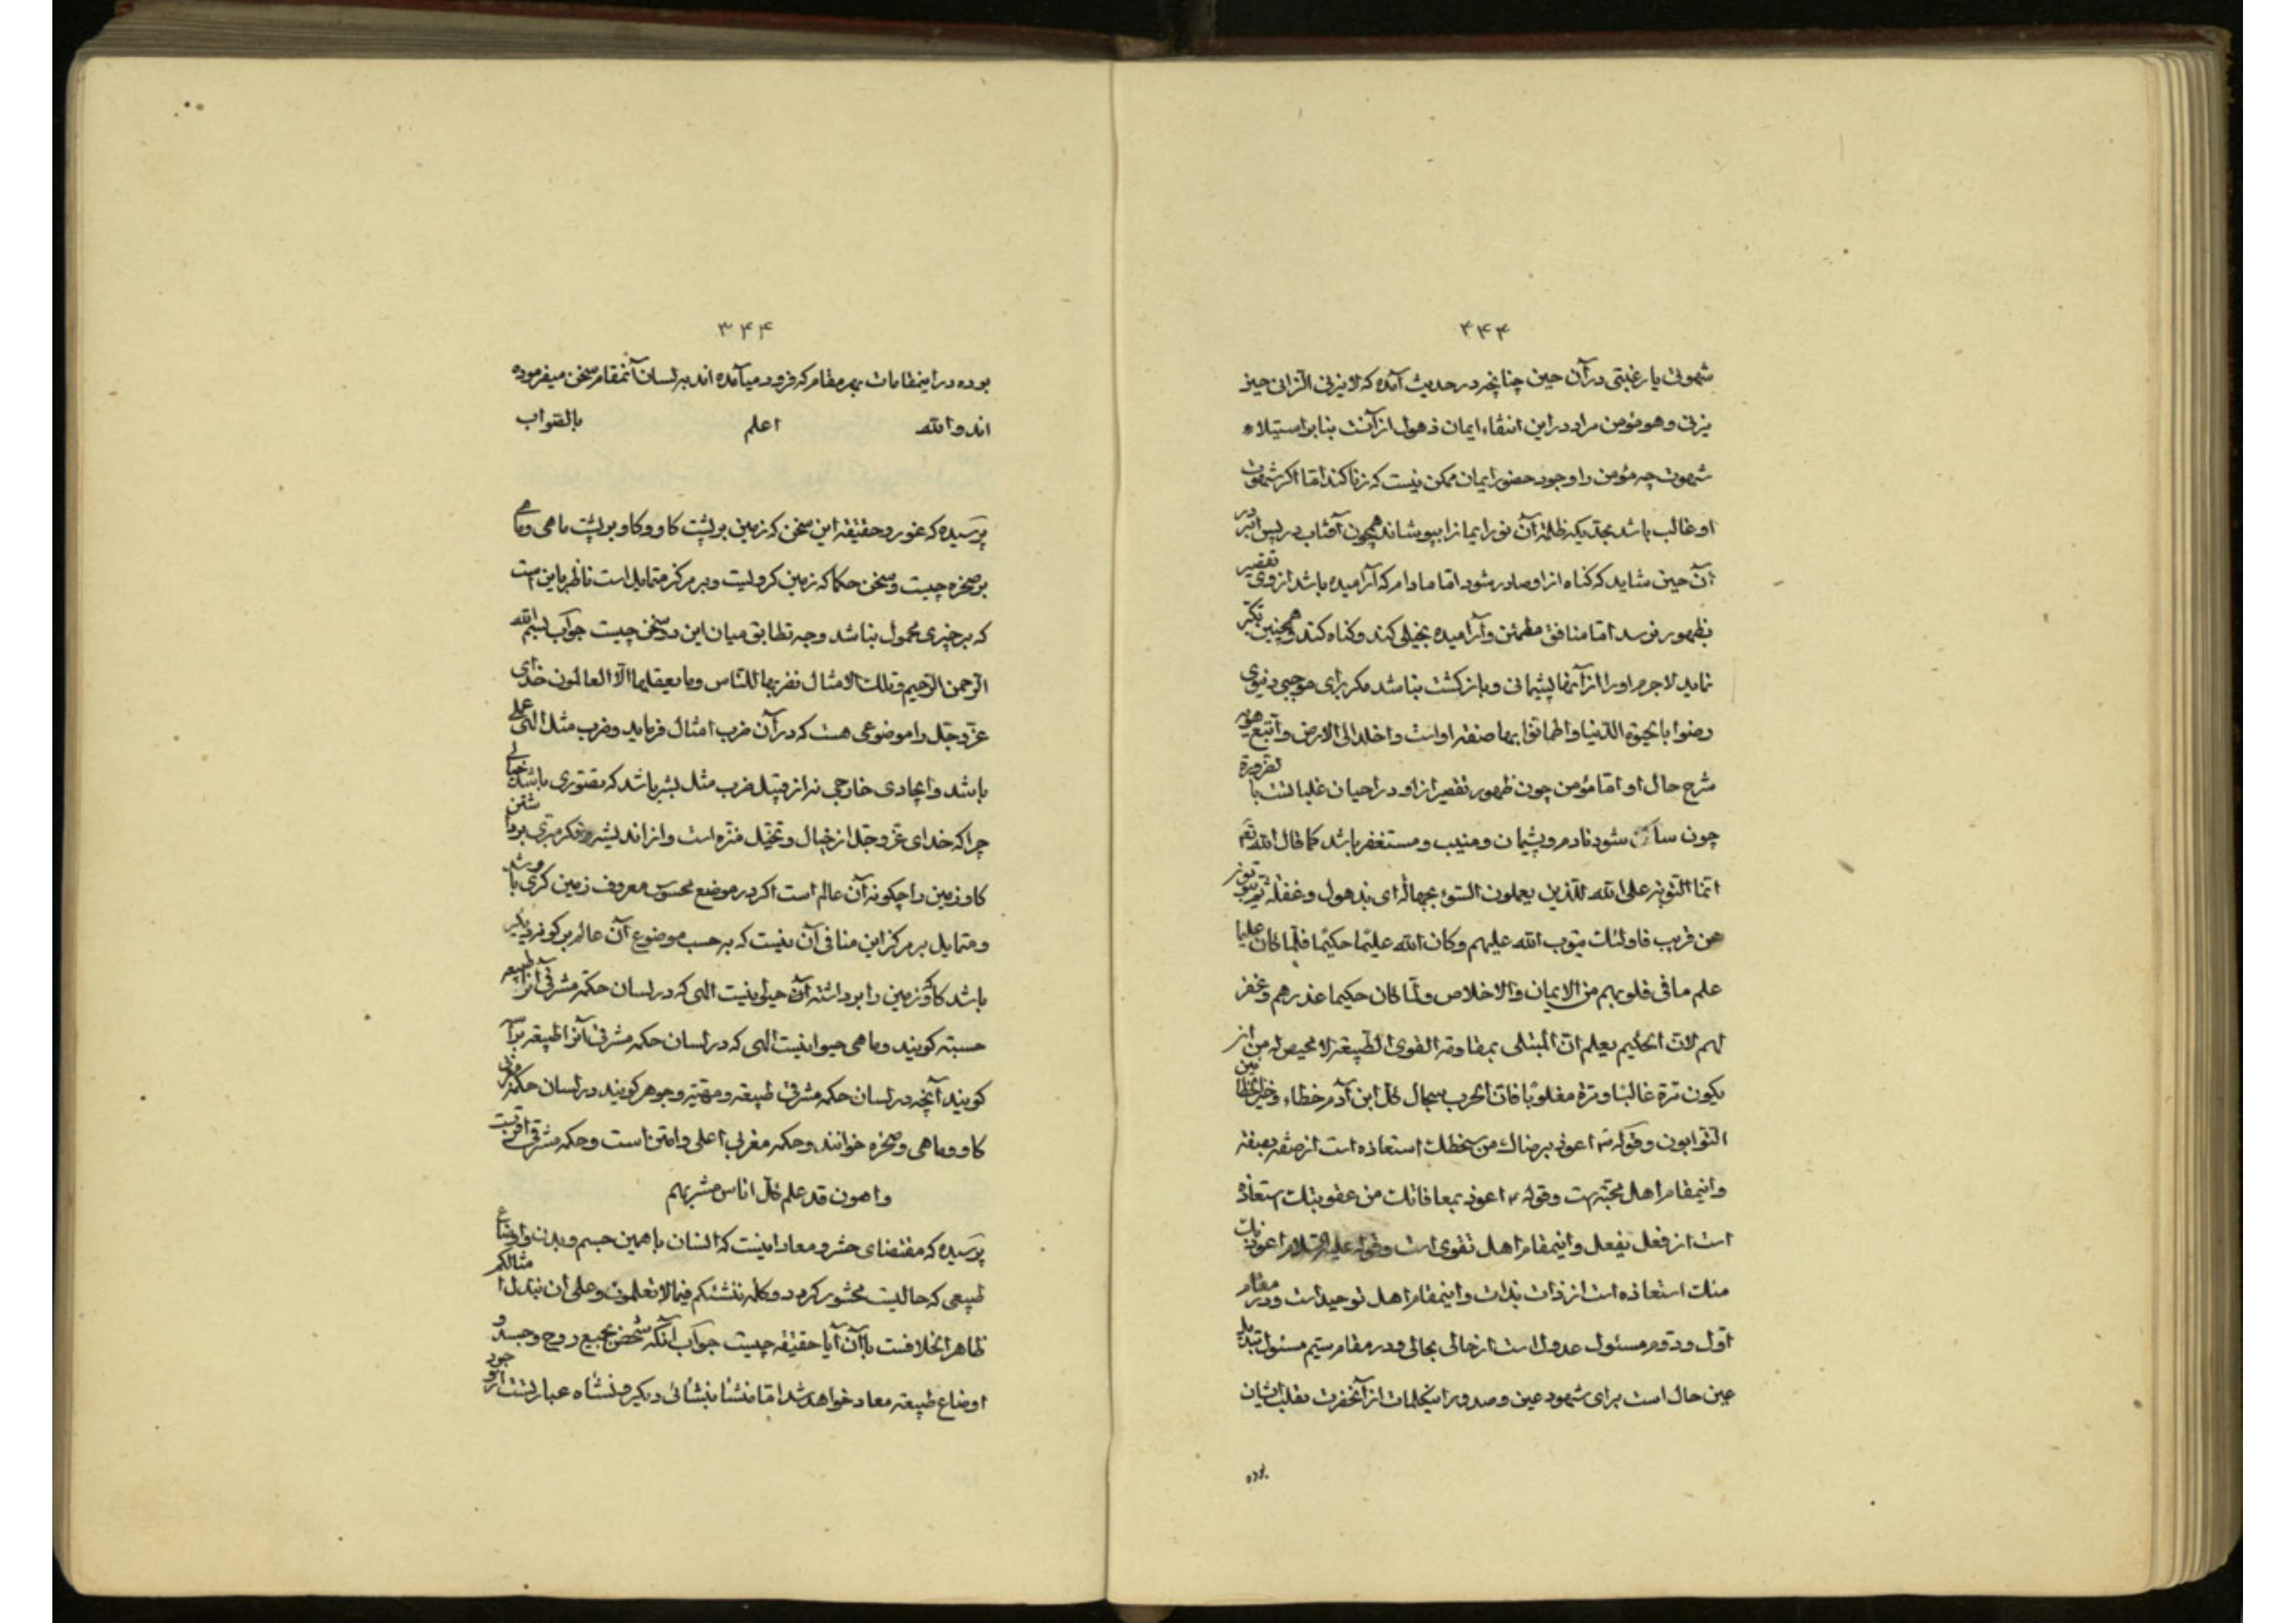 ۴۴۴
شهوتی یا رغبتی در آن حین چنانچه در حدیث آمده که لا یزنی الزانی حین
یزنی و هو مؤمن مراد در این انتفاء ایمان ذهول از آنست بنا بر استیلاء
شهوت چه مؤمن را وجود حضور ایمان ممکن نیست که زنا کند امّا اگر شهوت
او غالب باشد بحدّیکه ظلمة آن نور ایمانرا بپوشاند همچون آفتاب در پس ابر در
آن حین شاید که کناه از او صادر شود امّا مادام که آرامیده باشد از وی تقصیر
بظهور نرسد امّا منافق مطمئن و آرامیده بخیلی کند و کناه کند و همچنین تکبّر
نماید لاجرم او را از آنها پشیمانی و بازکشت نباشد مکر برای موجبی دنیوی
رضوا بالحیوة الدّنیا و اطمأنّوا بها صفة او است و اخلد الی الارض و اتّبع هویه
شرح حال او امّا مؤمن چون ظهور تقصیر از او در احیان غلبانست با
چون ساکن شود نادم و پشیمان و منیب و مستغفر باشد کما قال الله تع
انّما التّوبة علی الله للّذین یعملون السّوء بجهالة ای بذهول و غفلة ثمّ یتوبون
من قریب فاولئک یتوب الله علیهم و کان الله علیمًا حکیمًا فلمّا کان علیما
علم ما فی قلوبهم من الایمان و الاخلاص و لمّا کان حکیما عذرهم و غفر
لهم لانّ الحکیم یعلم انّ المبتلی بمقاومة القوی الطّبیعة لا محیص له من ان
یکون مرّة غالبًا و مرّة مغلوبًا فانّ الحرب سجال کل ابن آدم خطاء و خیر الخطائین
التّوابون و قوله اعوذ برضاک من سخطک استعاذه است از صفة بصفة
و اینمقام اهل محبّت است و قوله اعوذ بمعافاتک من عقوبتک استعاذه
است از فعل بفعل و اینمقام اهل تقوی است و قوله علیه السّلام اعوذ بک
منک استعاذه است از ذات بذات و اینمقام اهل توحید است و در مقام
اوّل و دوّم مسئول عدول است از حالی بحالی و در مقام سیّم مسئول تبدیل
عین حال است برای شهود عین و صدور اینکلمات از آنحضرت بغلبات ایشان
بوده
۳۴۴
بوده در اینمقامات بهر مقام که فرود میآمده اند بر لسان آنمقام سخن میفرموده
اند و الله اعلم بالصّواب
پرسیده که غور و حقیقة این سخن که زمین بر پشت کاو و کاو بر پشت ماهی و ماهی
بر صخره چیست و سخن حکما که زمین کرویست و بر مرکز متمایل است ناظر باین است
که بر چیزی محمول نباشد وجه تطابق میان این دو سخن چیست جواب بسم الله
الرّحمن الرّحیم و تلک الامثال نضربها للنّاس و ما یعقلها الّا العالمون خدای
عزّ و جلّ را موضوعی هست که در آن ضرب امثال فرماید و ضرب مثل الهی علمی
باشد و ایجادی خارجی نه از قبیل ضرب مثل بشر باشد که تصوّری باشد خیالی
چرا که خدای عزّ و جلّ از خیال و تخیّل منزّه است و از اندیشه و فکر مبرّی
کاو زمین را چکونه آن عالم است اکر در موضع محسوس معروف زمین کروی باشد
و متمایل بر مرکز این منافی آن نیست که بر حسب موضوع آن عالم بر کونه دیکر
باشد کاو زمین را برداشته آن حیوانیست الهی که در لسان حکمة مشرقی آنرا طبیعه
حسیّه کویند و ماهی حیوانیست الهی که در لسان حکمة مشرقی آنرا طبیعة
کویند آنچه در لسان حکمة مشرقی طبیعة و مهیّة و جوهر کویند در لسان حکمة
کاو و ماهی و صخره خوانند و حکمة مغربی اعلی و امتن است و حکمة مشرقی اقربست
و اهون قد علم کلّ اناس مشربهم
پرسیده که مقتضای حشر و معاد اینست که انسان با همین جسم و بدن و اوضاع
طبیعی که حالیست محشور کردد و کلمه ننشئکم فیما لا تعلمون و علی ان نبدّل امثالکم
ظاهرا خلافست با آن آیا حقیقة چیست جواب آنکه شخص بجمیع روح و جسد و
اوضاع طبیعة معاد خواهد شد امّا منشأ بنشأئی دیکر و نشأه عبارتست از وجود